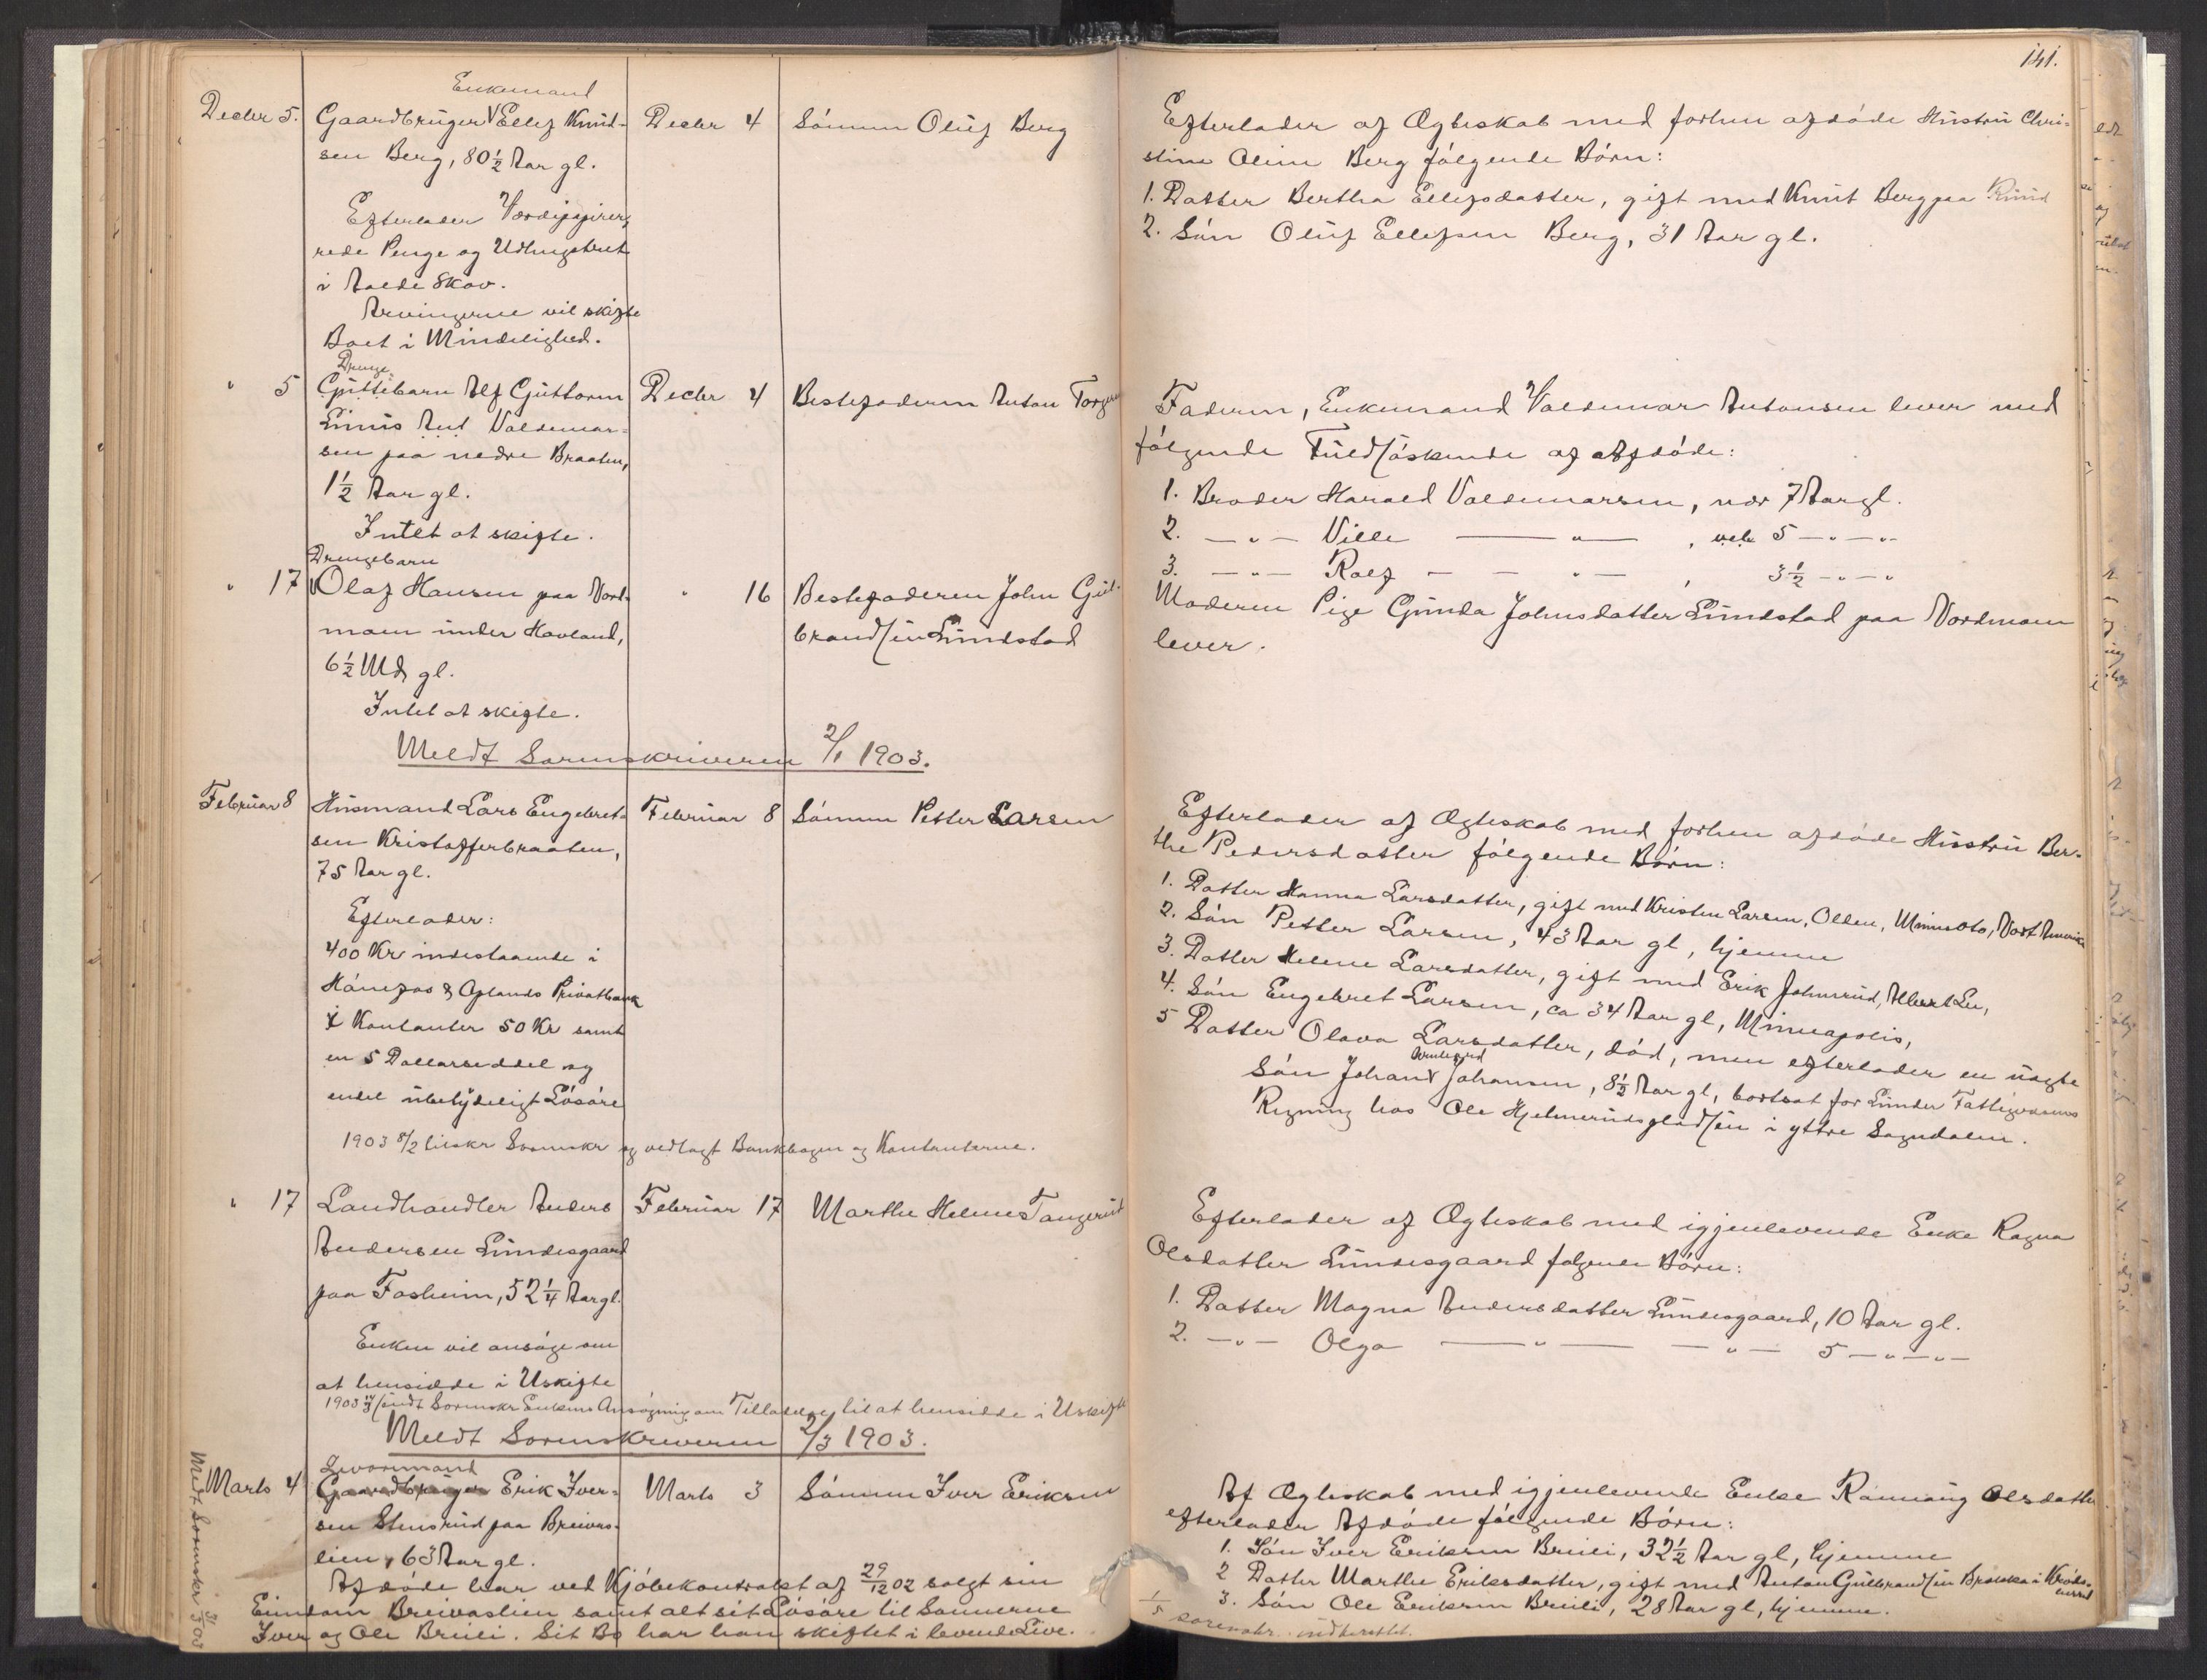 141.
Enkemand
Decbr 5. Gaardbruger Ellef Knud- Decbr 4 Sønnen Oluf Berg
sen Berg, 80½ Aar gl.
Efterlader Værdipapirer,
rede Penge og Udhugstret
i Aalde Skov.
Arvingerne vil skifte
Boet i Mindelighed.
Efterlader af Ægteskab med forhen afdøde Hustru Chri-
stine Oline Berg følgende Børn:
1. Datter Bertha Ellefsdatter, gift med Knut Berg paa Ruud
2. Søn Oluf Ellefsen Berg, 31 Aar gl.
Drenge
" 5 Guttebarn Alf Guttorm Decbr 4 Bestefaderen Anton Torger
Linus Ant Valdemar-
sen paa nedre Braaten,
1½ Aar gl.
Intet at skifte.
Faderen, Enkemand Valdemar Antonsen lever med
følgende Fuldsøskende af Afdøde:
1. Broder Harald Valdemarsen, nær 7 Aar gl.
2. — " — Ville — " — , vel 5 — " — " —
3. — " — Rolf — — " — , 3½ — " — " —
Drengebarn
" 17 Olaf Hansen paa Nord- " 16 Bestefaderen John Gul-
moen under Hovland, brandsen Lundstad
6½ Md gl.
Intet at skifte.
Moderen Pige Gunda Johnsdatter Lundstad paa Nordmoen
lever.
Meldt Sorenskriveren 2/1 1903.
Februar 8 Husmand Lars Engebret- Februar 8 Sønnen Petter Larsen
sen Kristofferbraaten,
75 Aar gl.
Efterlader:
400 Kr indestaaende i
Hønefos & Oplands Privatbank
i Kontanter 50 Kr samt
en 5 Dollarseddel og
endel ubetydeligt Løsøre
1903 8/2 tilskr Sorenskr og vedlagt Bankbogen og Kontanterne.
Efterlader af Ægteskab med forhen afdøde Hustru Ber-
the Pedersdatter følgende Børn:
1. Datter Hanna Larsdatter, gift med Kristen Larsen, Olden, Minnesota, Nord Amerika
2. Søn Petter Larsen, 43 Aar gl, hjemme
3. Datter Helene Larsdatter, gift med Erik Johnsrud, Albert Lea,
4. Søn Engebret Larsen, ca 34 Aar gl, Minneapolis,
5 Datter Olava Larsdatter, død, men efterlader en uægte
Søn Johan Johansen, 8½ Aar gl, bortsat for Lunder Fattigvæsens
Regning hos Ole Hjelmerudsgladsen i yttre Sogndalen.
" 17 Landhandler Anders Februar 17 Marthe Helene Tangerud
Andersen Lundesgaard
paa Fosheim, 52¼ Aar gl.
Enken vil ansøge om
at hensidde i Uskifte
1903 sendt Sorenskr Enkens Ansøgning om Tilladelse til at hensidde i Uskifte
Efterlader af Ægteskab med igjenlevende Enke Ragna
Olsdatter Lundesgaard følgende Børn:
1. Datter Magna Andersdatter Lundesgaard, 10 Aar gl.
2. — " — Olga — " — — " — 5 — " — " —
Meldt Sorenskriveren 2/3 1903.
Livøremand
Marts 4 Gaardbruger Erik Iver- Marts 3 Sønnen Iver Eriksen
sen Stensrud paa Breivas-
lien, 63 Aar gl.
Afdøde har ved Kjøbekontrakt af 29/12 02 solgt sin
Eiendom Breivaslien samt alt sit Løsøre til Sønnerne
Iver og Ole Breili. Sit Bo har han skiftet i levende Live.
Meldt Sorenskr 03
Af Ægteskab med igjenlevende Enke Rønnaug Olsdatter
efterlader Afdøde følgende Børn:
1. Søn Iver Eriksen Breili, 32½ Aar gl, hjemme
2 Datter Marthe Eriksdatter, gift med Anton Gulbrandsen i Krøds-
herred
3. Søn Ole Eriksen Breili, 28 Aar gl, hjemme.
1/5 sorenskr. indberettet.